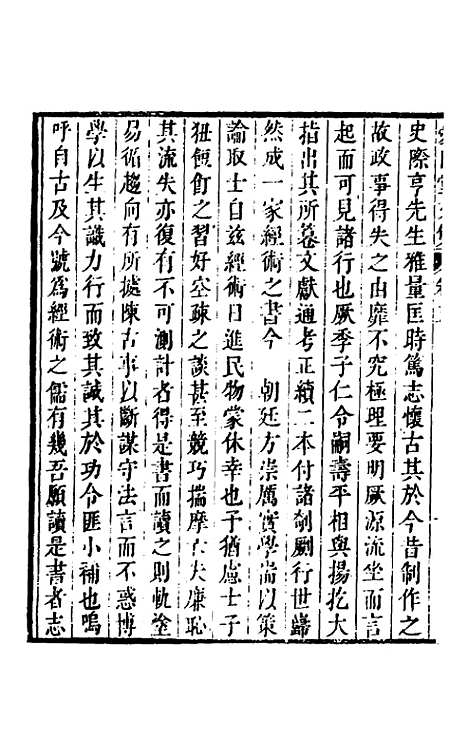 史際亨先生雅量匡時篤志懷古其於今昔制作之
故政事得失之由靡不究極理要明厥源流坐而言
起而可見諸行也厥季子仁令嗣壽平相與揚扢大
指出其所纂文獻通考正續二本付諸剞劂行世歸
然成一家經術之書今 朝廷方崇厲實學耑以策
論取士自兹經術日進民物蒙休幸也予猶慮士子
狃飣之習好空疎之談甚至競巧揣摩夫廉恥
其流失亦復有不可測計者得是書而讀之則軌塗
易循趨向有所據陳古事以斷謀守法言而不惑博
學以生其識力行而致其誠其於功令匪小補也嗚
呼自古及今號為經術之儒有幾吾願讀是書者志